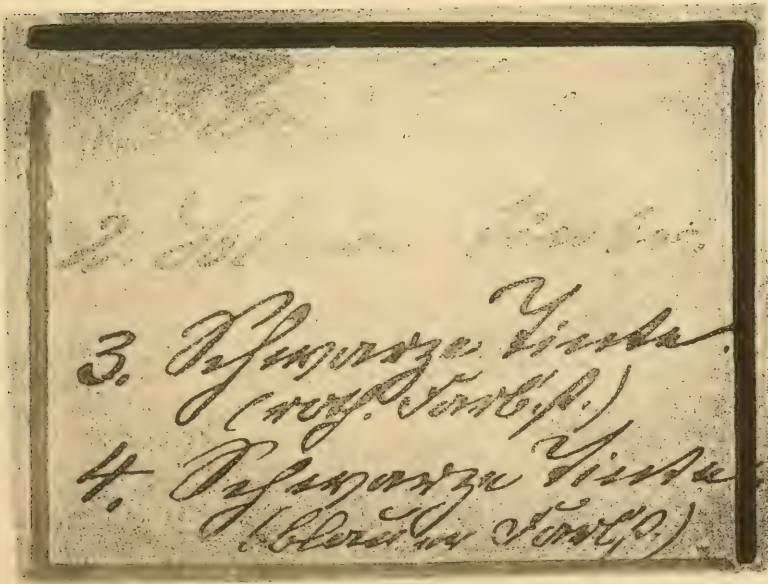 2.
3. Schwarze Tinte.
(roth. Farbst.)
4. Schwarze Tinte
(blauer Farbst.)